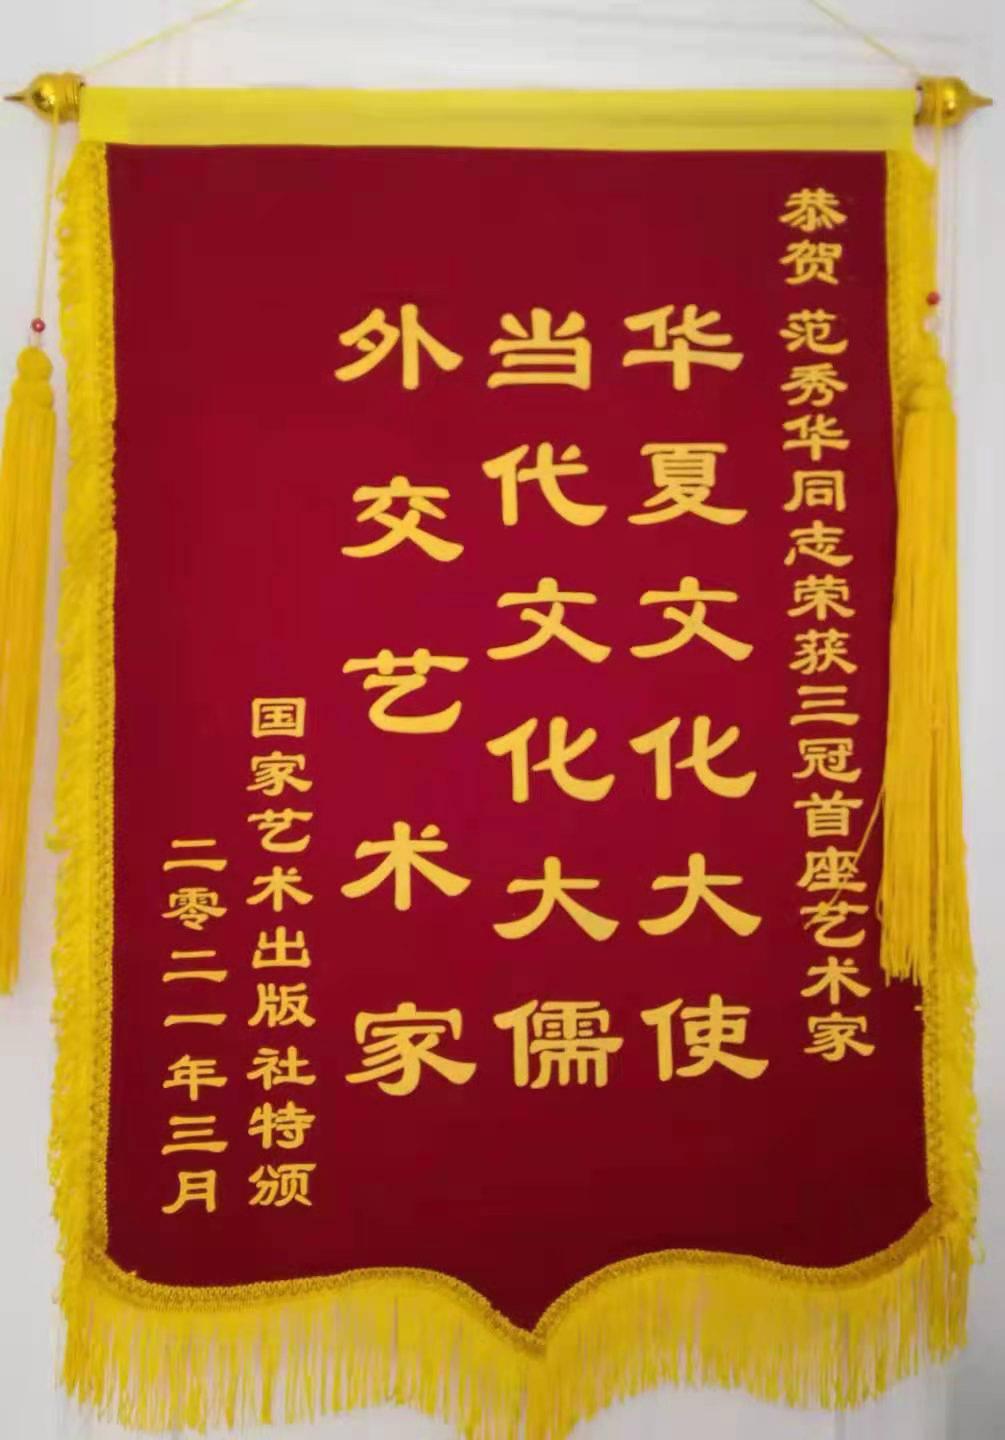 恭贺 范秀华同志荣获三冠首座艺术家
华夏文化大使
当代文化大儒
外交艺术家
国家艺术出版社特颁
二零二一年三月